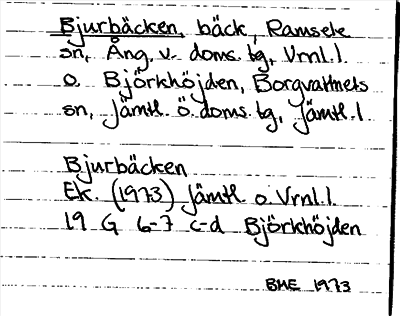 Bjurbäcken, bäck, Ramsele
sn, Ång. v. doms. bg, Vrnl. l.
o. Björkhöjden, Borgvattnets
sn, Jämtl. ö. doms. bg, Jämtl. l
Bjurbäcken
Ek. (1973) Jämtl. o. Vrnl. l.
19 G 6-7 c-d Björkhöjden
BHE 1973